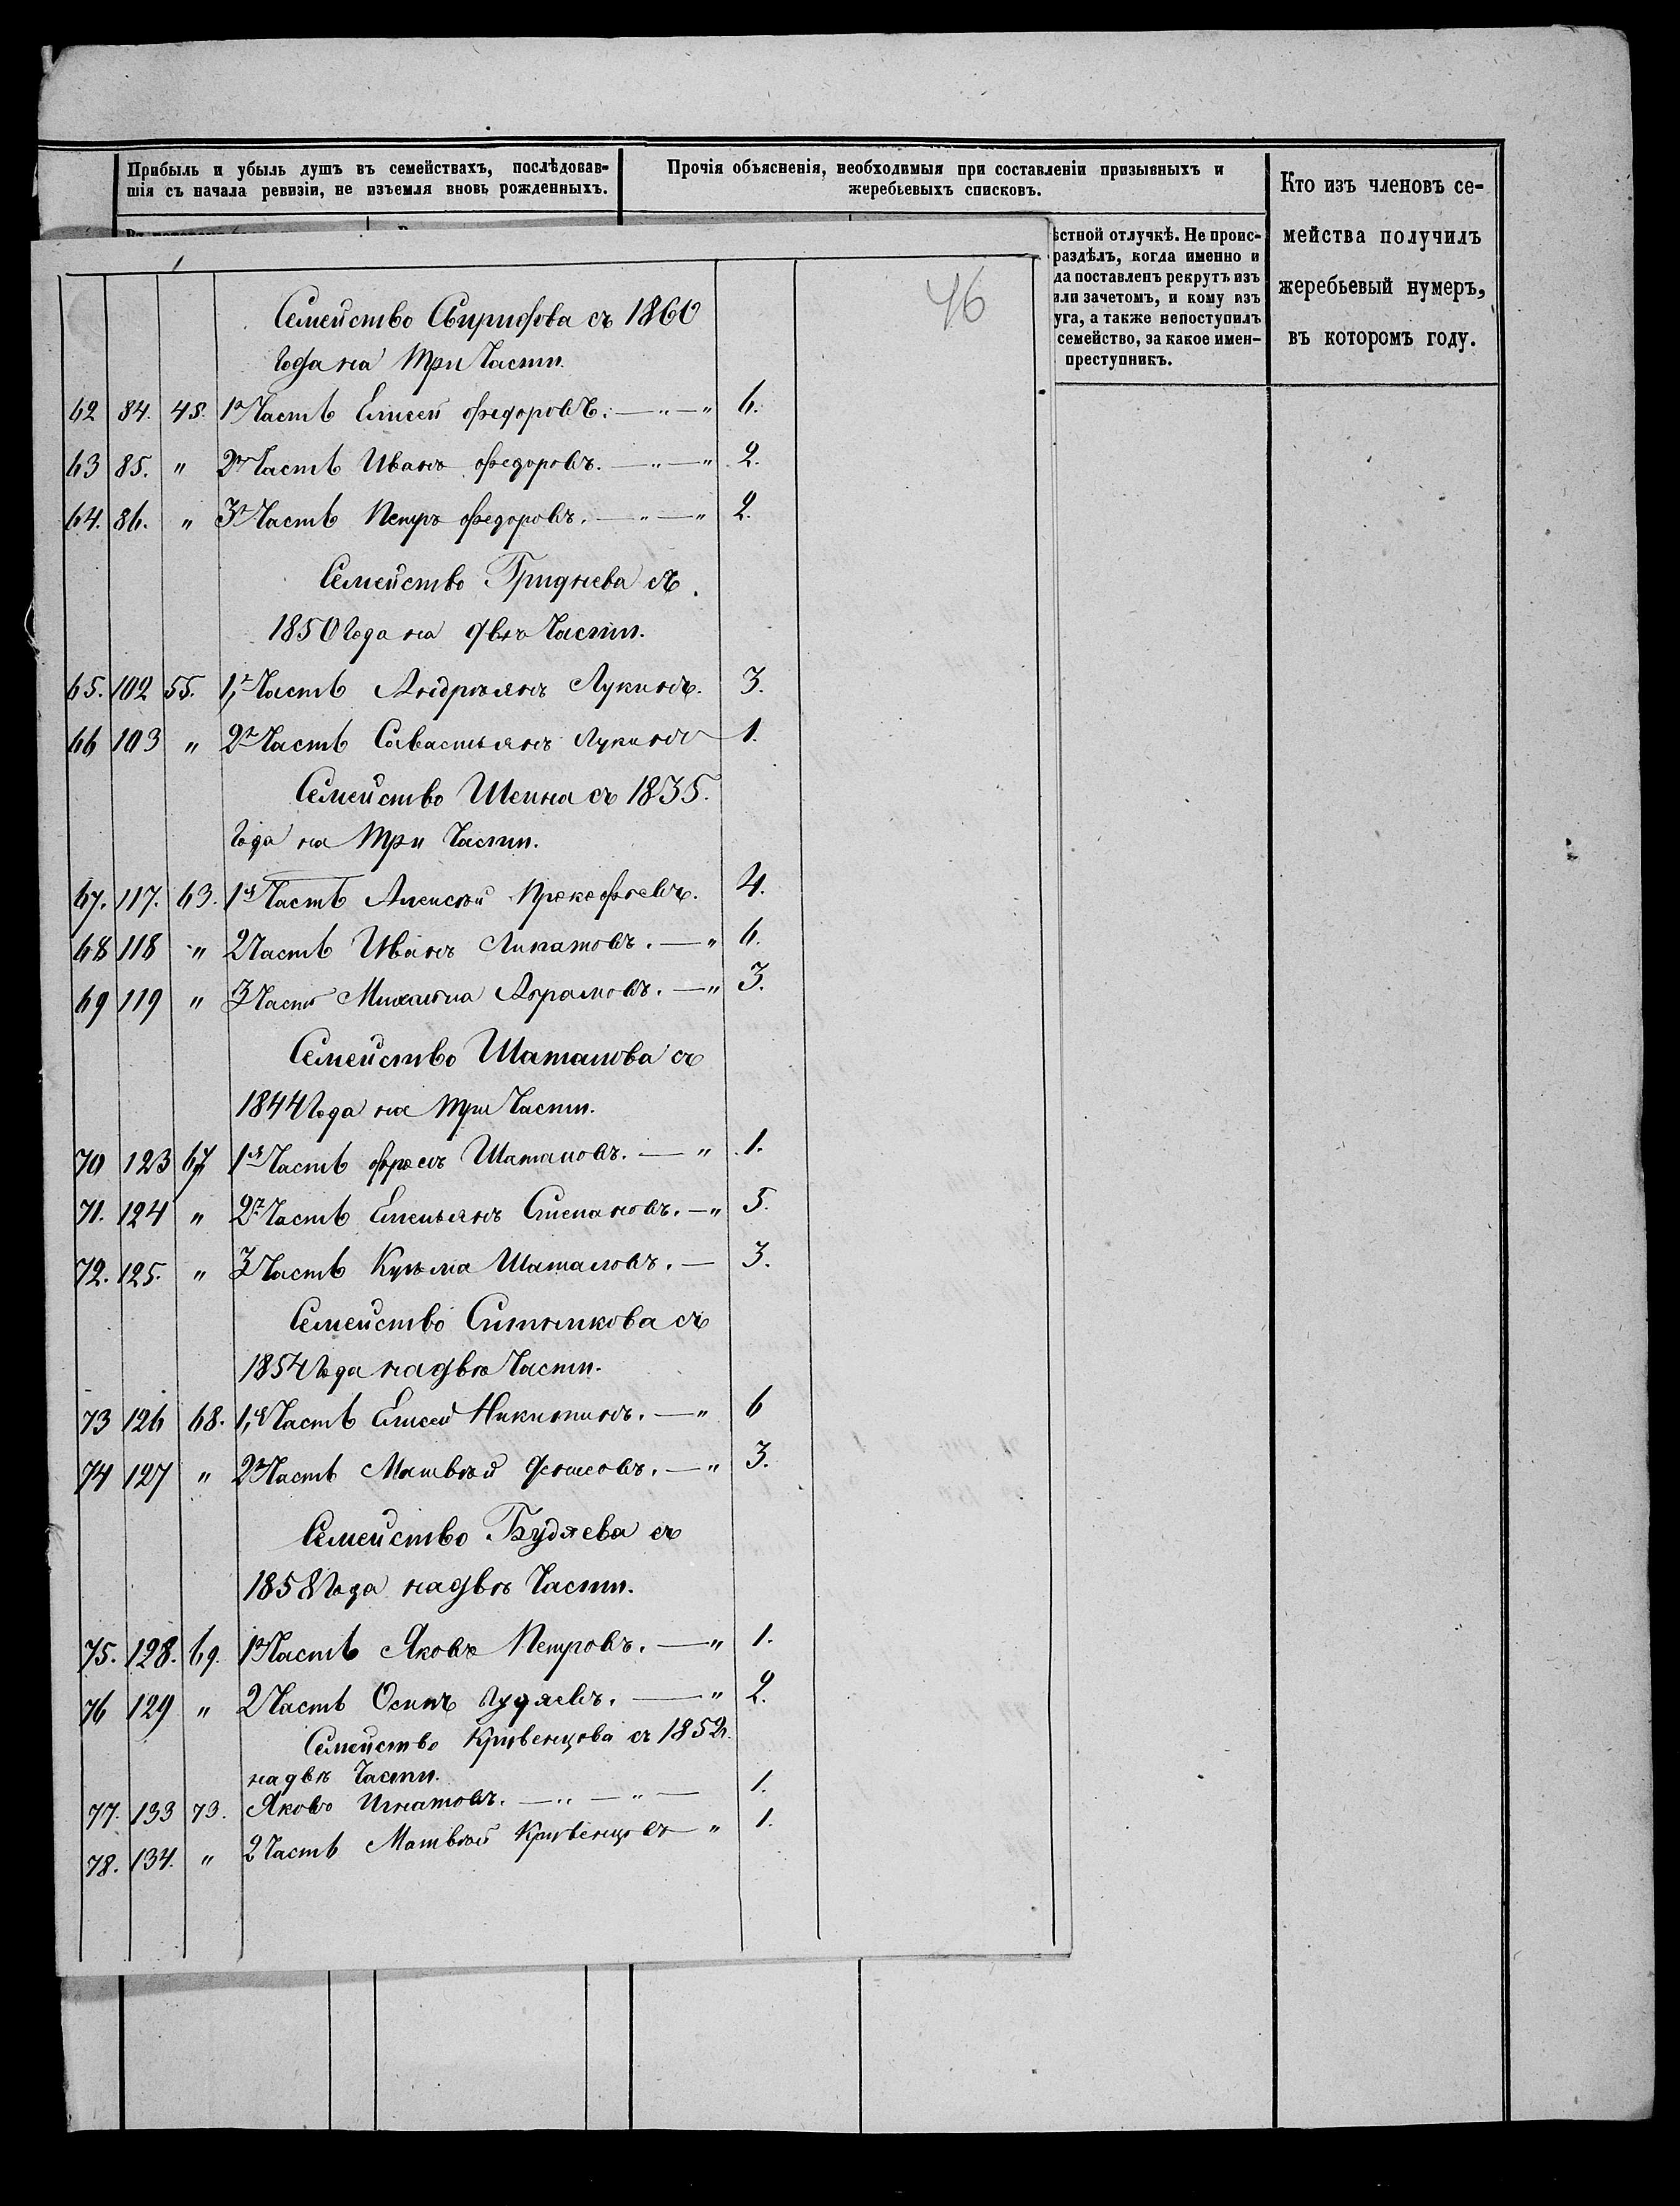 Прибыль и убыль душъ въ семействахъ, послѣдовав-
шія съ начала ревизіи, не изъемля вновь рожденныхъ.
Прочія объясненія, необходимыя при составленіи призывныхъ и
жеребьевыхъ списковъ.
Кто изъ членовъ се-
мейства получилъ
жеребьевый нумеръ,
въ которомъ году.
ѣстной отлучкѣ. Не проис-
раздѣлъ, когда именно и
да поставленъ рекрутъ изъ
или зачетомъ, и кому изъ
уга, а также непоступилъ
семейство, за какое имен-
преступникъ.
46
Семейство Свиридова съ 1860
Года на Три Части.
62 84. 45. 1я Часть Елисей Федоровъ. — „ — „ 6.
63 85. „ 2я Часть Иванъ Федоровъ. — „ — „ 2.
64. 86. „ 3я Часть Петръ Федоровъ. — „ — „ 2.
Семейство Гриднева съ
1850 Года на двѣ Части.
65. 102 55. 1я Часть Андреянъ Лукинъ. 3.
66 103 „ 2я Часть Савастьянъ Лукинъ 1.
Семейство Шеина съ 1835.
Года на Три Части.
67. 117. 63. 1я Часть Алексѣй Прокофьевъ. 4.
68 118 „ 2 Часть Иванъ . — „ 6.
69 119 „ 3 Часть Михайла Абрамовъ. — „ 3.
Семейство Шаталова съ
1844 Года на Три Части.
70 123 67 1я Часть Фролъ Шаталовъ. — „ 1.
71. 124 „ 2я Часть Емельянъ Степановъ. — „ 5.
72. 125. „ 3 Часть Кузьма Шаталовъ. — 3.
Семейство Ситникова съ
1854 Года на двѣ Части.
73 126 68. 1я Часть Елисей Никитинъ. — „ 6
74 127 „ 2я Часть Матвѣй . — „ 3.
Семейство Будяева съ
1858 Года на двѣ Части.
75. 128. 69. 1я Часть Яковъ Петровъ. — „ 1.
76 129 „ 2 Часть Осипъ . — „ 2.
Семейство Кривенцова съ 1852.
на двѣ Части.
77. 133 73. Яковъ Игнатовъ. — „ — „ — 1.
78. 134. „ 2 Часть Матвѣй Кривенцовъ „ 1.